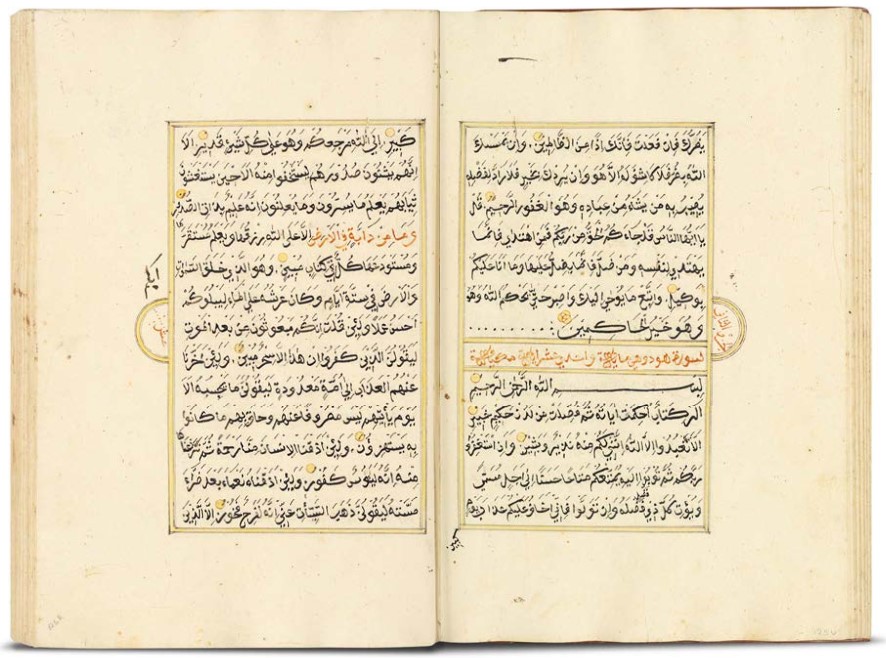 يضرك فإن فعلت فإنك إذا من الظالمين وإن يمسسك
الله بضر فلا كاشف له إلا هو وإن يردك بخير فلا راد لفضله
يصيب به من يشاء من عباده وهو الغفور الرحيم قل
يا أيها الناس قد جاءكم الحق من ربكم فمن اهتدى فإنما
يهتدي لنفسه ومن ضل فإنما يضل عليها وما أنا عليكم
بوكيل واتبع ما يوحى إليك واصبر حتى يحكم الله وهو
وهو خير الحاكمين
سورة هود وهي ماية
بسم الله الرحمن الرحيم
الر كتاب أحكمت آياته ثم فصلت من لدن حكيم خبير
ألا تعبدوا إلا الله إنني لكم منه نذير وبشير وأن استغفروا
ربكم ثم توبوا إليه يمتعكم متاعا حسنا إلى أجل مسمى
ويؤت كل ذي فضل فضله وإن تولوا فإني أخاف عليكم عذاب يوم
كبير
كبير إلى الله مرجعكم وهو على كل شيء قدير ألا
إنهم يثنون صدورهم ليستخفوا منه ألا حين يستغشون
ثيابهم يعلم ما يسرون وما يعلنون إنه عليم بذات الصدور
وما من دابة في الأرض إلا على الله رزقها ويعلم مستقرها
ومستودعها كل في كتاب مبين وهو الذي خلق السموات
والأرض في ستة أيام وكان عرشه على الماء ليبلوكم أيكم
أحسن عملا ولئن قلت إنكم مبعوثون من بعد الموت
ليقولن الذين كفروا إن هذا إلا سحر مبين ولئن أخرنا
عنهم العذاب إلى أمة معدودة ليقولن ما يحبسه ألا
يوم يأتيهم ليس مصروفا عنهم وحاق بهم ما كانوا
به يستهزؤن ولئن أذقنا الإنسان منا رحمة ثم نزعناها
منه إنه ليئوس كفور ولئن أذقناه نعماء بعد ضراء
مسته ليقولن ذهب السيئات عني إنه لفرح فخور إلا الذين